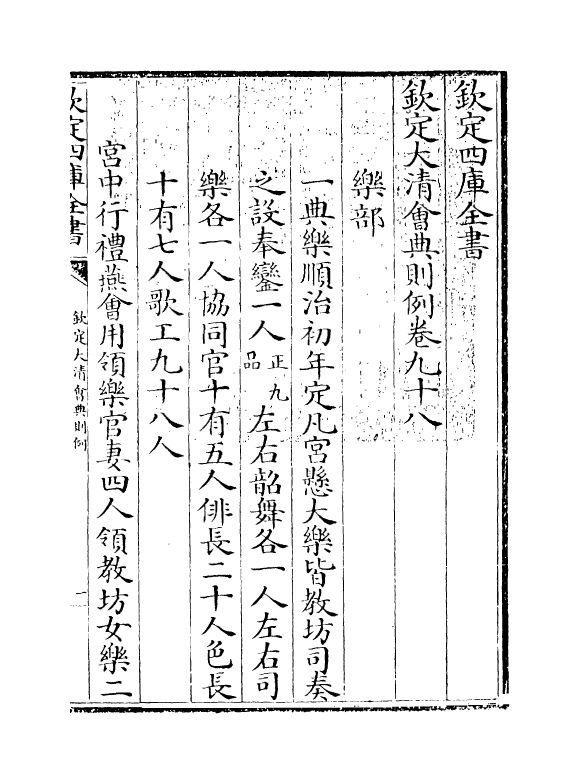 欽定四庫全書
欽定大清會典則例卷九十八
樂部
一典樂順治初年定凡宮懸大樂皆教坊司奏
之設奉鑾一人正九品左右韶舞各一人左右司
樂各一人協同官十有五人俳長二十人色長
十有七人歌工九十八人
宮中行禮燕會用領樂官妻四人領教坊女樂二
欽定四庫全書
欽定大清會典則例
一